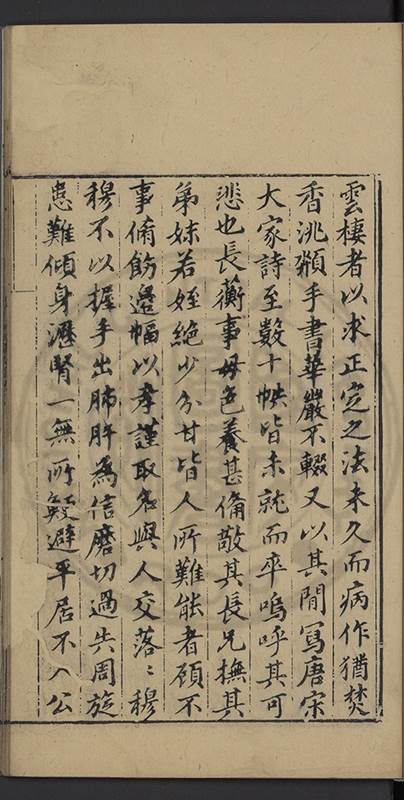 雲棲者以求正定之法未久而病作猶焚
香洮頮手書華嚴不輟又以其間寫唐宋
大家詩至數十帙皆未就而卒嗚呼其可
悲也長蘅事母色養甚備敬其長兄撫其
弟妹若姪絕少分甘皆人所難能者顧不
事脩飭邊幅以孝謹取名與人交落〻穆
穆不以握手出肺肝為信磨切過失周旋
患難傾身瀝腎一無所鯁避平居不入公